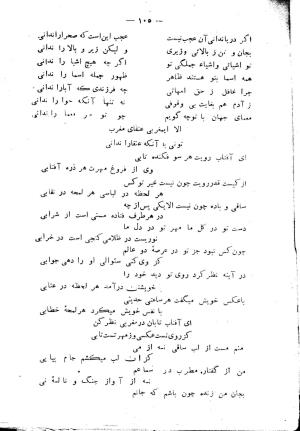 - ۱۰۵ -
اگر دریا ندانی آن عجب نیست عجب این است که صحرا را ندانی
بجان و تن ز بالائی وزیری و لیکن زیر و بالا را ندانی
تو اشیائی واشیاء جملگی تو اگر چه هیچ اشیا را ندانی
همه اسما بتو هستند ظاهر ظهور جمله اسما را ندانی
چرا غافل ز حق امهاتی چه فرزندی که آبا را ندانی
ز آدم هم بغایت بی وقوفی نه تنها آنکه حوا را ندانی
معمای جهان با تو چه گویم چو تو در معما را ندانی
الا ای مغربی عنقای مغرب
توئی با آنکه عنقا را ندانی
ای آفتاب رویت هر سو فکنده تابی
وی از فروغ مهرت هر ذره آفتابی
از کیست قدر رویت چون نیست غیر تو کس
هر لحظه در لباسی هر لحظه در نقابی
ساقی و باده چون نیست الا یکی پس از چه
در هر طرف فتاده مستی است از شرابی
مهر تو در دل ما
توریست در ظلامی گنجی است در خرابی
چون کس نبود جز تو در عرصهٔ دو عالم
کز وی کنی سئوالی او را دهی جوابی
در آینه نظر کرد روی تو دید خود را
خویشتن در آمد هر لحظه در عتابی
با عکس خویش میگفت هر ساعتی حدیثی
با نفس خویش میکرد هر لحظهٔ خطابی
ای آفتاب تابان در مغربی نظر کن
کز روی تست عکسی و ز مهر تست تابی
منم مست از لب ساقی نه از می
کز آن لب میکشم جام پیاپی
من از گفتار مطرب در سماعم
نه از آواز چنگ و نالهٔ نی
بجان من زنده چون باشم که جانم